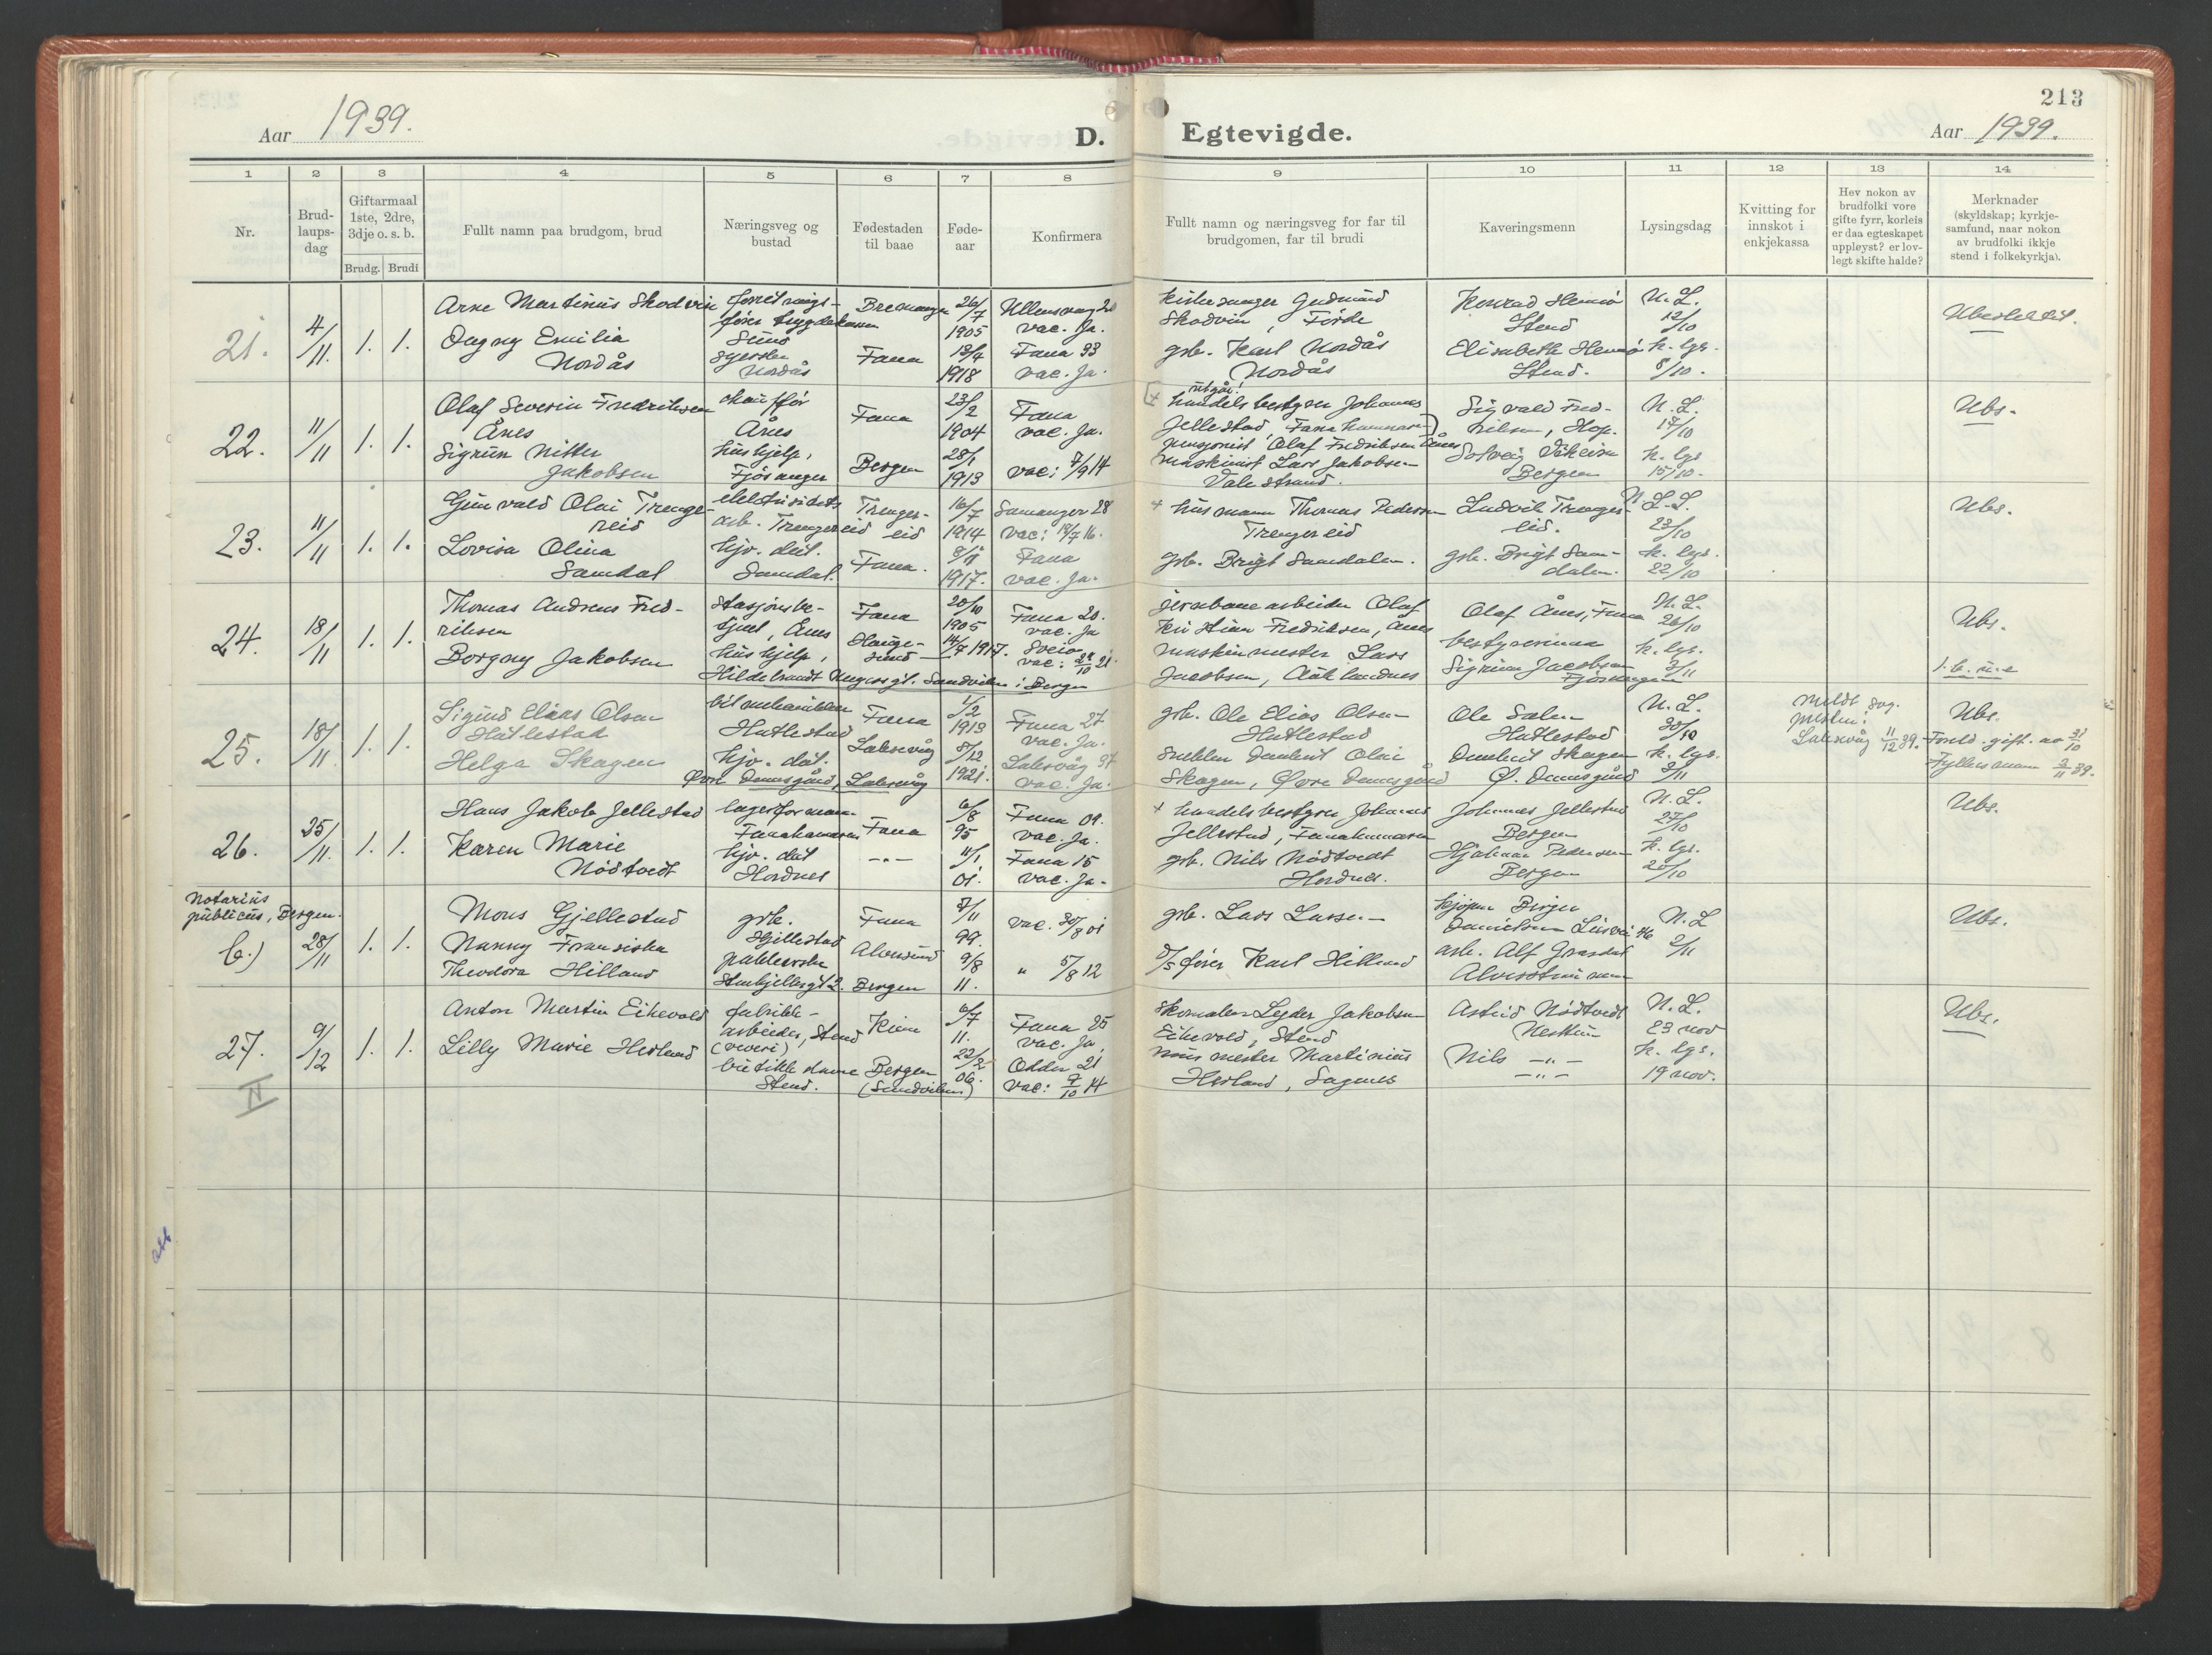 213
Aar 1939.
D. Egtevigde.
Aar 1939.
1 2 3 4 5 6 7 8 9 10 11 12 13 14
Nr.
Brud-
laups-
dag
Giftarmaal
1ste, 2dre,
3dje o. s. b.
Brudg. Brudi
Fullt namn paa brudgom, brud
Næringsveg og
bustad
Fødestaden
til baae
Føde-
aar
Konfirmera
Fullt namn og næringsveg for far til
brudgomen, far til brudi
Kaveringsmenn
Lysingsdag
Kvitting for
innskot i
enkjekassa
Hev nokon av
brudfolki vore
gifte fyrr, korleis
er daa egteskapet
uppløyst? er lov-
legt skifte halde?
Merknader
(skyldskap; kyrkje-
samfund, naar nokon
av brudfolki ikkje
stend i folkekyrkja).
21. 4/11. 1. 1.
Arne Martinus Skodvin
Dagny Emilia
Nordås
Stend
Nordås
Bremanger
Fana
26/7
1905
13/4
1918
Ullensvang 20
vac. Ja.
Fana 33
vac. Ja.
kirkesanger Gudmund
Skodvin, Förde
gsb. Karl Nordås
Nordås
Konrad
Stend
Elisabeth
Stend.
N. L.
12/10
k. lys.
8/10.
Ubeslektet.
22. 11/11 1. 1.
Olaf Severin Fredriksen
Ånes
Sigrun Nitter
Jakobsen
chaufför
Ånes
hushjelp,
Fjösanger
Fana
Bergen
23/2
1904
28/1
1913
Fana
vac. Ja.
vac: 7/9 14
utgår!
handelsbestyrer Johannes
Jellestad Fanahammaren
pensjonist Olaf Fredriksen Ånes
maskinist Lars Jakobsen
Valestrand.
Sigvald Fred-
riksen, Hop.
Solveig
Bergen
N. L.
17/10
k. lys
15/10.
Ubs.
23. 11/11 1. 1.
Gunvald Olai Trenge-
reid
Lovisa Olina
Samdal
elektrisitets
arb. Trengereid
hjv. dat.
Samdal.
Trenger-
eid
Fana.
16/7
1914
8/11
1917.
Samanger 28
vac: 18/7 16.
Fana
vac. Ja.
+ husmann Thomas Pedersen
Trengereid
gsb. Brigt Samdalen.
Ludvik Trenger-
eid.
gsb. Brigt Sam-
dalen.
N. L.
23/10
k. lys.
22/10
Ubs.
24. 18/11 1. 1.
Thomas Andreas Fred-
riksen
Borgny Jakobsen
stasjonsbe-
tjent, Ånes
hushjelp,
Hildebrandt Meyersgt. Sandviken i Bergen
Fana
Hauge-
sund
20/10
1905
14/7 1917.
Fana 20.
vac. Ja
Sveio
jernbanearbeider Olaf
Kristian Fredriksen, Ånes
maskinmester Lars
Jacobsen,
Olaf Ånes, Fana
bestyrerinna
Sigrun Jacobsen
Fjösanger
N. L.
26/10
k. lys.
3/11
Ubs.
25. 18/11 1. 1.
Sigurd Elias Olsen
Hatlestad
Helga Skagen
bilmekaniker
Hatlestad
hjv. dat.
Øvre Damsgård, Laksevåg
Fana
Laksevåg
1/2
1913
8/12
1921.
Fana 27
vac. Ja.
Laksevåg
vac. Ja.
gsb. Ole Elias Olsen
Hatlestad
snekker Dankert Olai
Skagen, Øvre Damsgård
Ole Salen
Hatlestad
Dankert Skagen
Ø. Damsgård
N. L.
30/10
k. lys.
3/11
Meldt sog.
presten i
Laksevåg 11/12 39.
Ubs.
Foreld. gift. av 31/10
Fyllesmann 3/11 39.
26. 25/11. 1. 1.
Hans Jakob Jellestad
Karen Marie
Nödtvedt
lagerformann
Fanahammaren
hjv. dat
Hordnes
Fana
-„-
6/8
95
11/1
01.
Fana 09.
vac. Ja.
Fana 15
vac. Ja.
+ handelsbestyrer Johannes
Jellestad, Fanahammaren
gsb. Nils Nödtvedt
Hordnes.
Johannes Jellestad
Bergen
Hjalmar Pedersen
Bergen
N. L.
27/10
k. lys.
20/10
Ubs.
Notarius
publicus, Bergen.
b.) 28/11 1. 1.
Mons Gjellestad
Nanny Fransiska
Theodora Hilland
gsb.
Gjellestad
Bergen
Fana
7/11
99.
9/8
11.
vac. 30/8 01
„ 5/8 12
gsb. Lars Larsen
D/S förer Karl Hilland
kjöpm Birger
Danielsen
arb. Alf
N. L
2/11
Ubs.
27. 9/12 1. 1.
Anton Martin Eikevold
Lilly Marie Herland
fabrikk-
arbeider, Stend
(veveri)
butikkdame
Stend.
Bergen
(Sandviken)
6/7
11.
22/2
06.
Fana 25
vac. Ja.
Odda 21
vac: 7/10 14
skomaker Lyder Jakobsen
Eikevold, Stend
murmester Martinius
Herland, Sagenes
Astrid Nödtvedt
Nesttun
Nils -„-
-„-
N. L.
23 nov
k. lys.
19 nov.
Ubs.